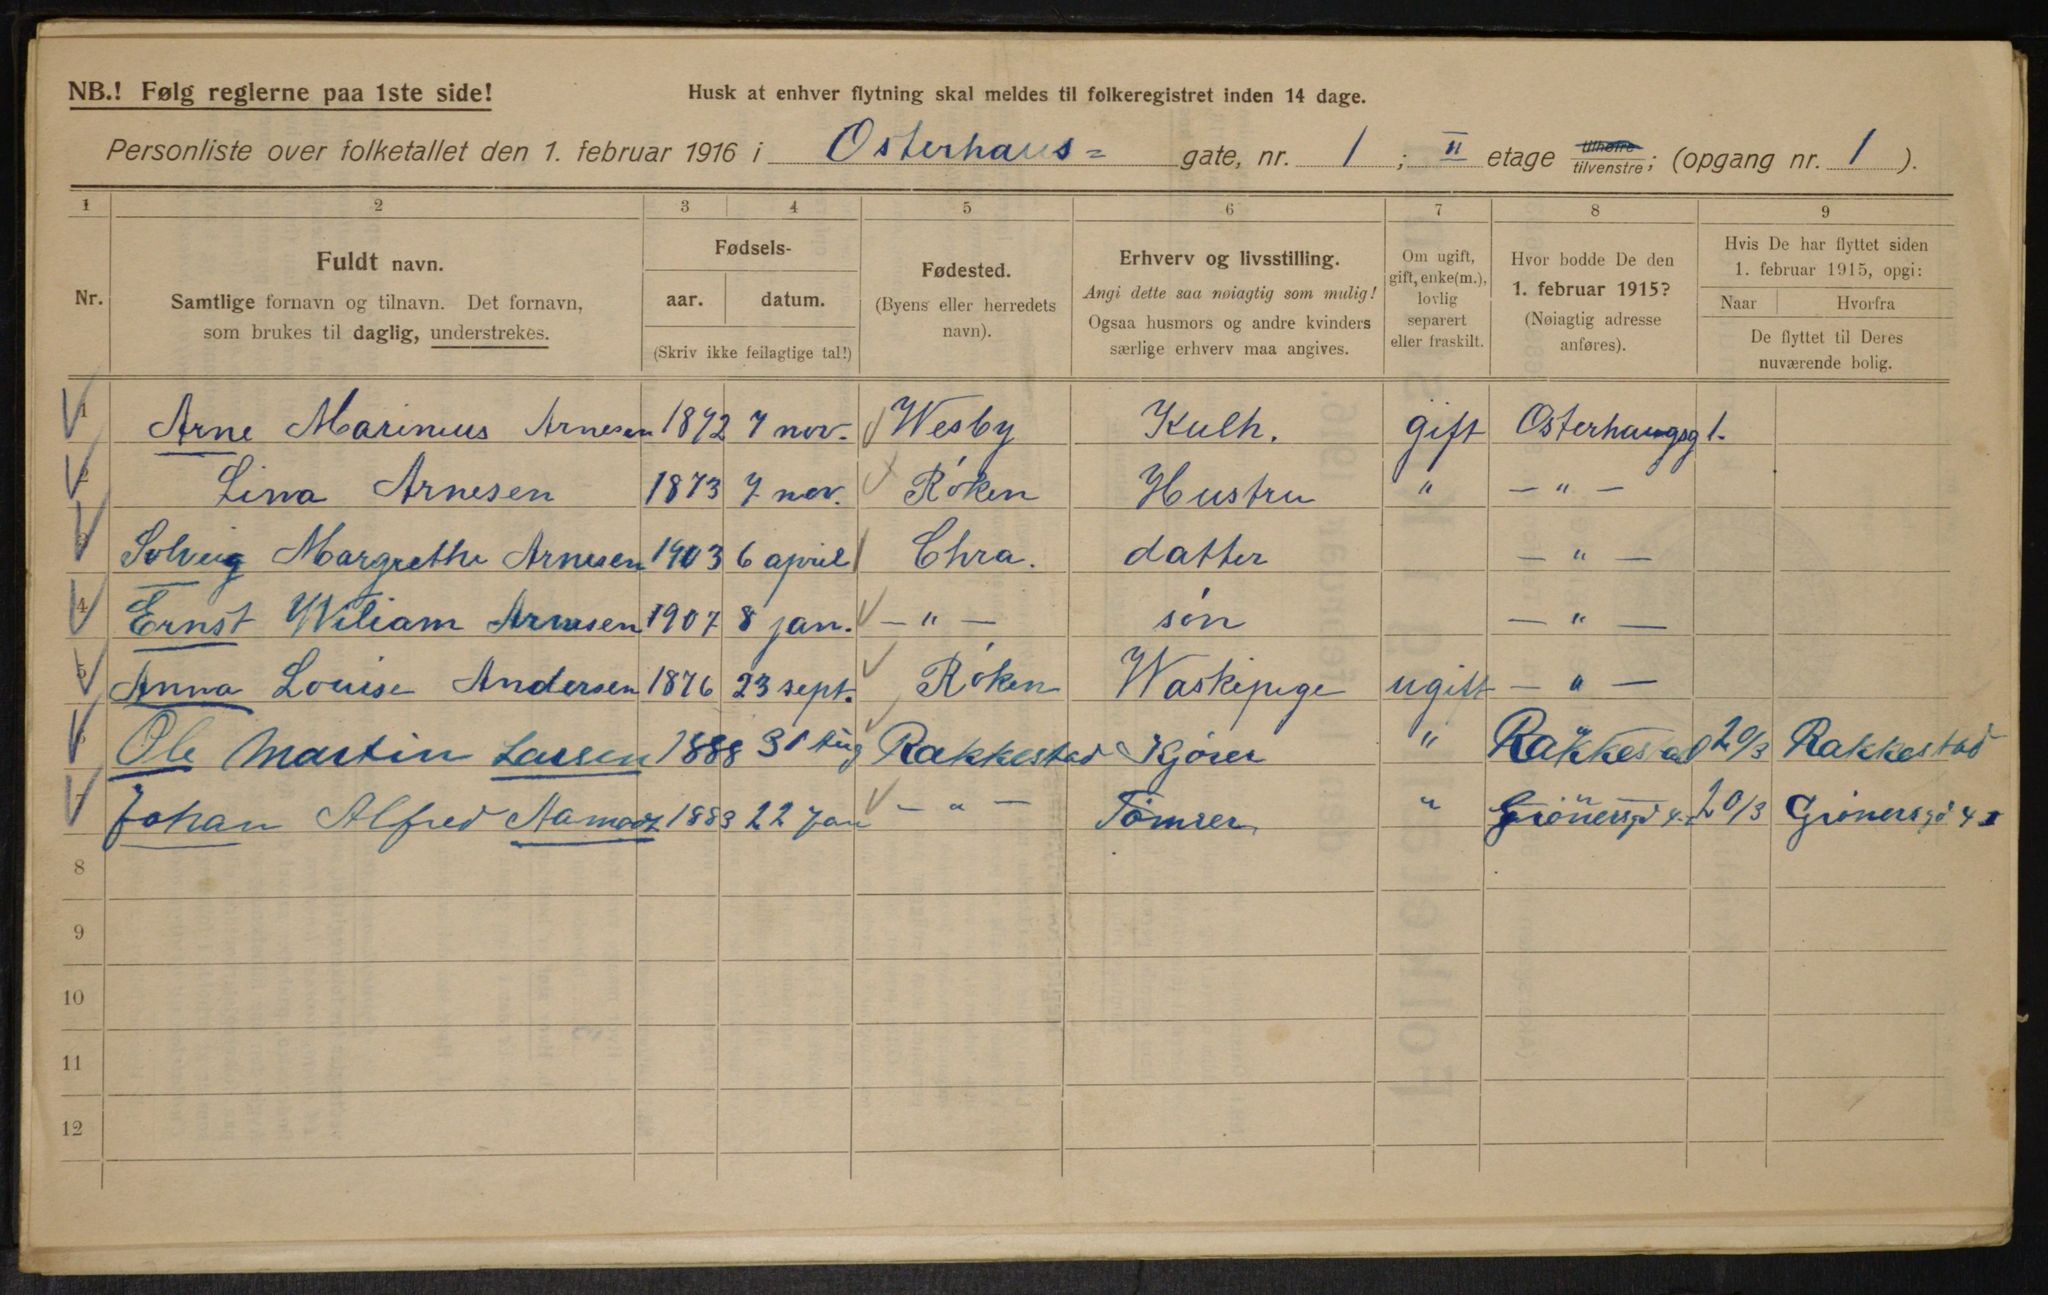 NB.! Følg reglerne paa 1ste side!
Husk at enhver flytning skal meldes til folkeregistret inden 14 dage.
Personliste over folketallet den 1. februar 1916 i Osterhaus= gate, nr. 1 ; II etage tilhøire / tilvenstre; (opgang nr. 1 ).
1 2 3 4 5 6 7 8 9
Nr.
Fuldt navn.
Samtlige fornavn og tilnavn. Det fornavn,
som brukes til daglig, understrekes.
Fødsels-
aar. datum.
(Skriv ikke feilagtige tal!)
Fødested.
(Byens eller herredets
navn).
Erhverv og livsstilling.
Angi dette saa nøiagtig som mulig!
Ogsaa husmors og andre kvinders
særlige erhverv maa angives.
Om ugift,
gift, enke(m.),
lovlig
separert
eller fraskilt.
Hvor bodde De den
1. februar 1915?
(Nøiagtig adresse
anføres).
Hvis De har flyttet siden
1. februar 1915, opgi:
Naar Hvorfra
De flyttet til Deres
nuværende bolig.
1 Arne Marinius Arnesen 1872 7 nov. Wesby Kulh. gift Osterhausg 1.
2 Lina Arnesen 1873 7 nov. Røken Hustru " — " —
3 Solveig Margrethe Arnesen 1903 6 april Chra. datter — " —
4 Ernst Wiliam Arnesen 1907 8 jan. — " — søn — " —
5 Anna Louise Andersen 1876 23 sept. Røken Waskepige ugift — " —
6 Ole Martin Larsen 1888 31 Aug Rakkestad Kjører " Rakkestad 20/3 Rakkestad
7 Johan Alfred 1883 22 Jan — " — Tømrer " Grönersgd 4 20/3 Grönersgd 4
8
9
10
11
12